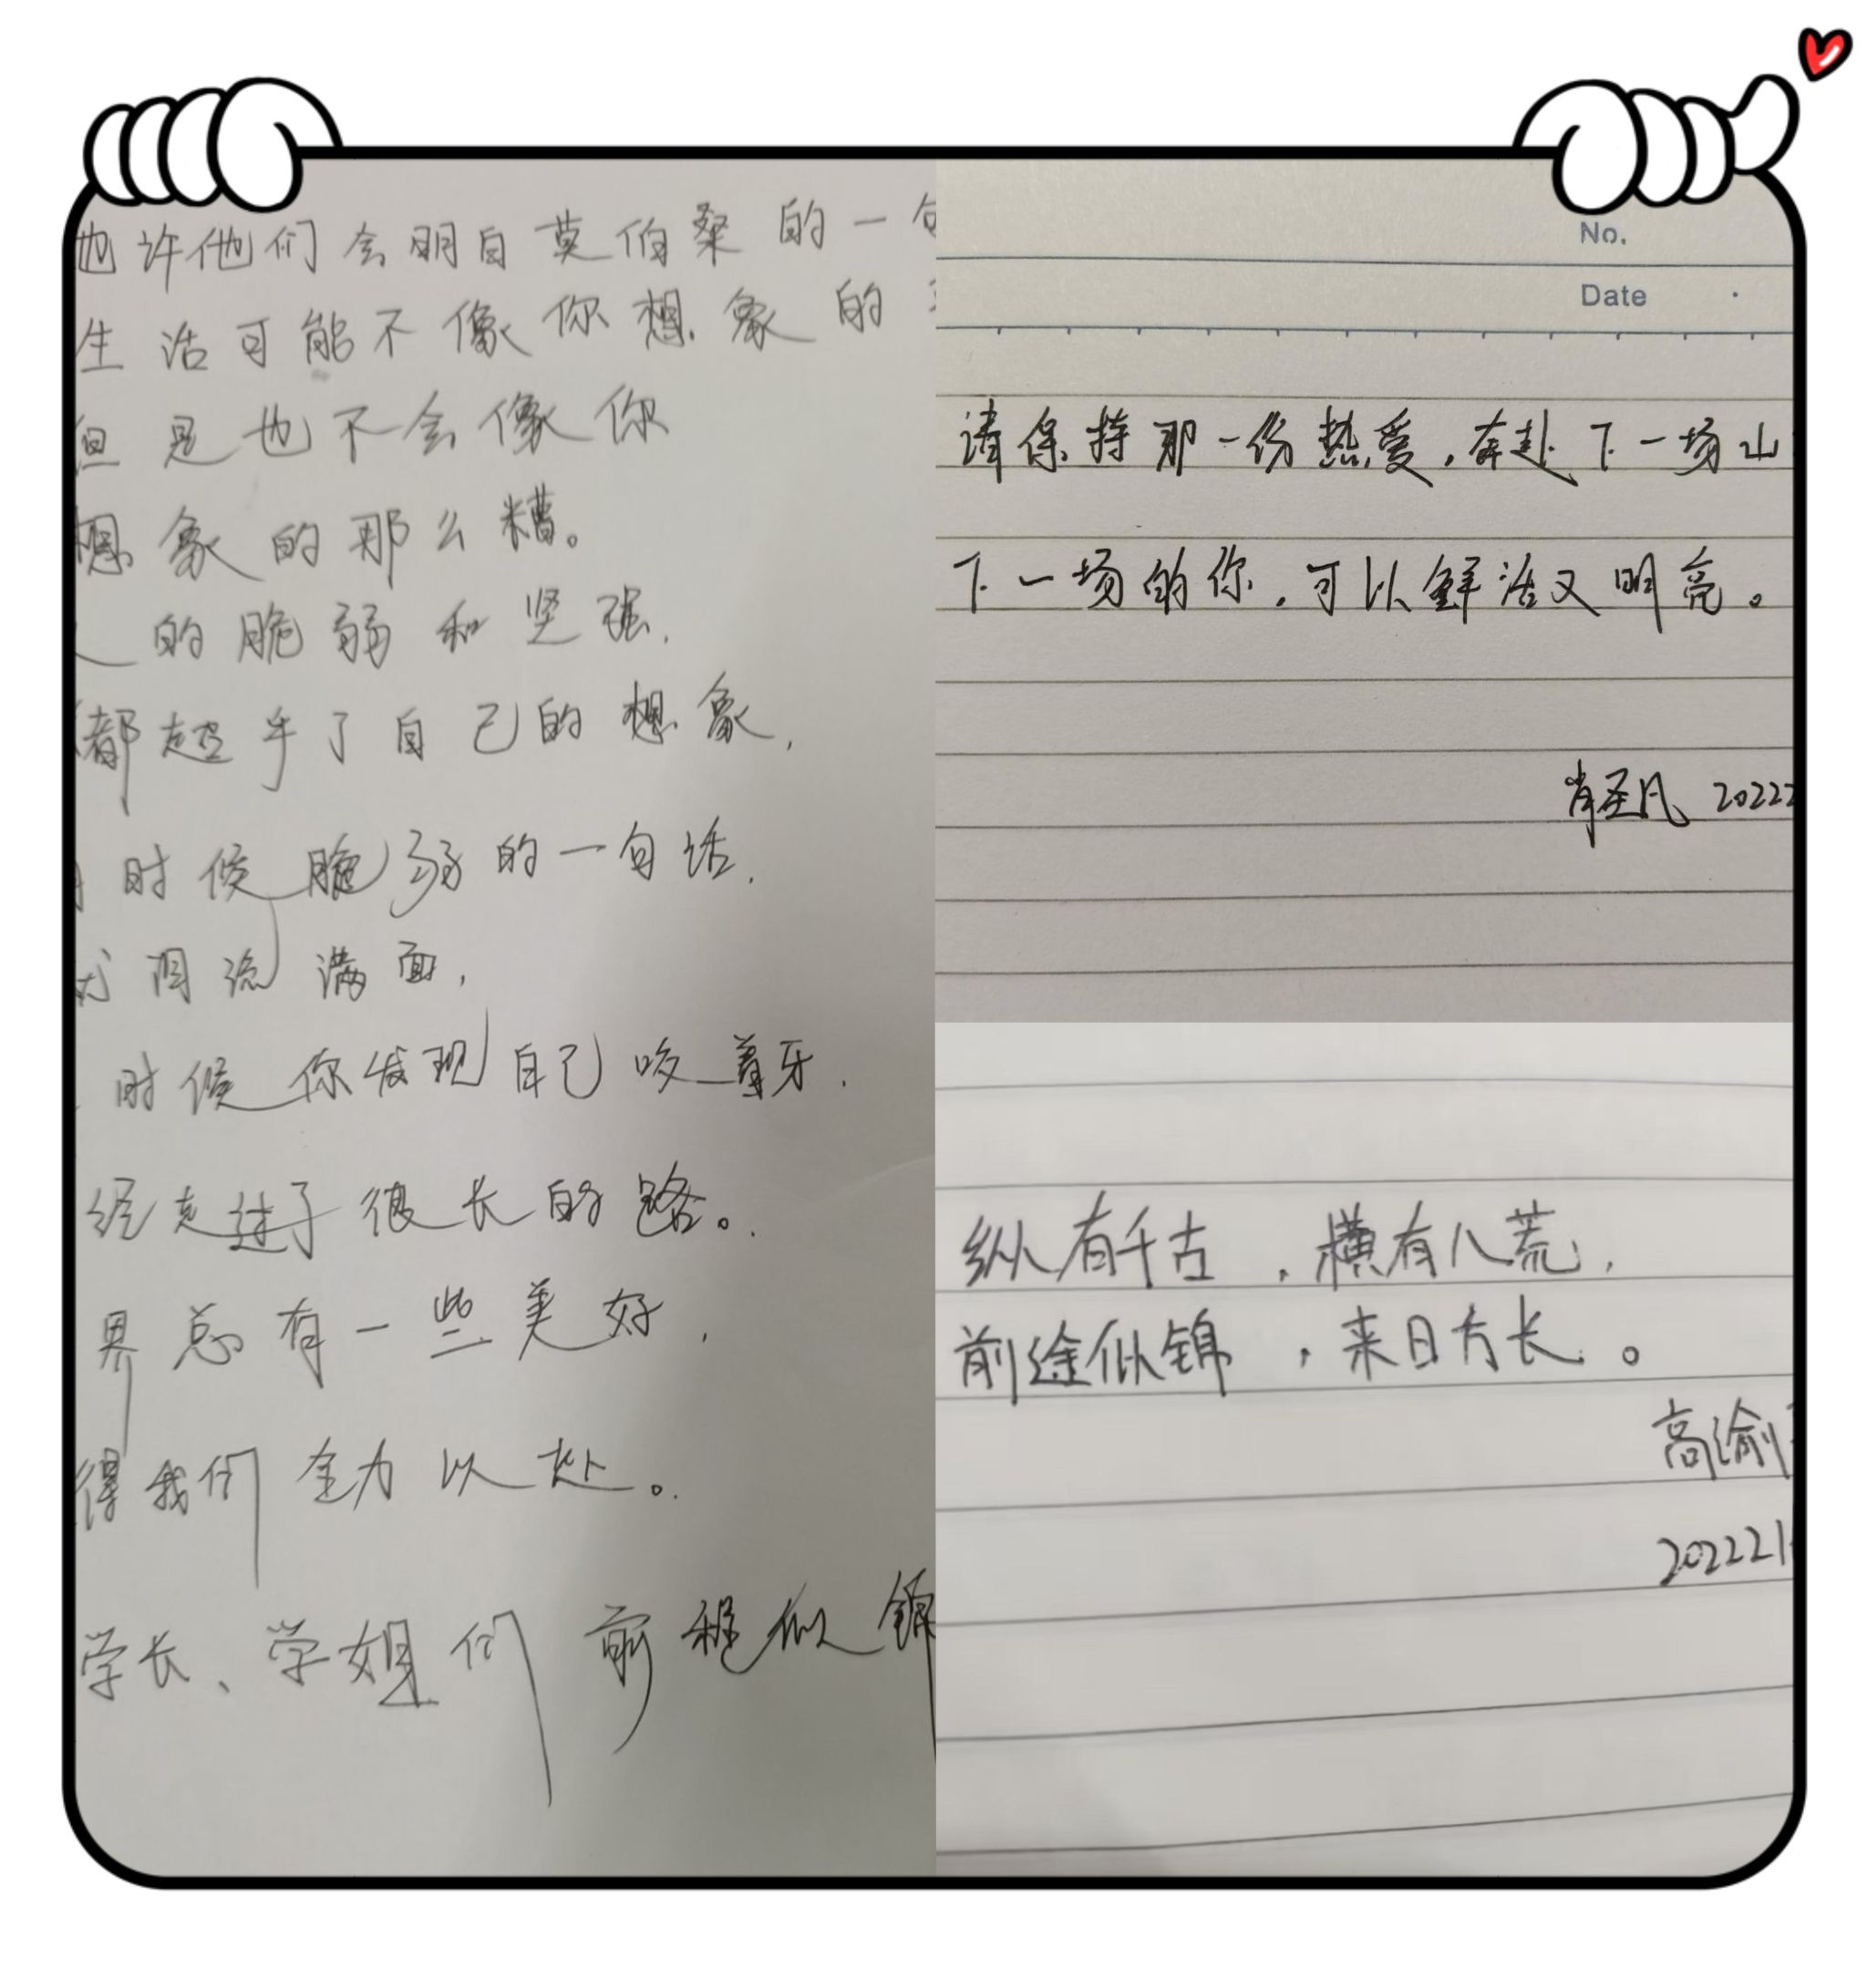 也许他们会明白莫伯桑的一句
生活可能不像你想象的
但是也不会像你
想象的那么糟。
的脆弱和坚强,
都超乎了自己的想象,
时候脆弱的一句话,
泪流满面,
时候你发现自己咬着牙,
经走过了很长的路。
界总有一些美好,
得我们全力以赴。
学长、学姐们前程似锦
No.
Date
请保持那一份热爱,奔赴下一场山
下一场的你,可以鲜活又明亮。
肖圣凡 20222
纵有千古,横有八荒,
前途似锦,来日方长。
高渝
202221